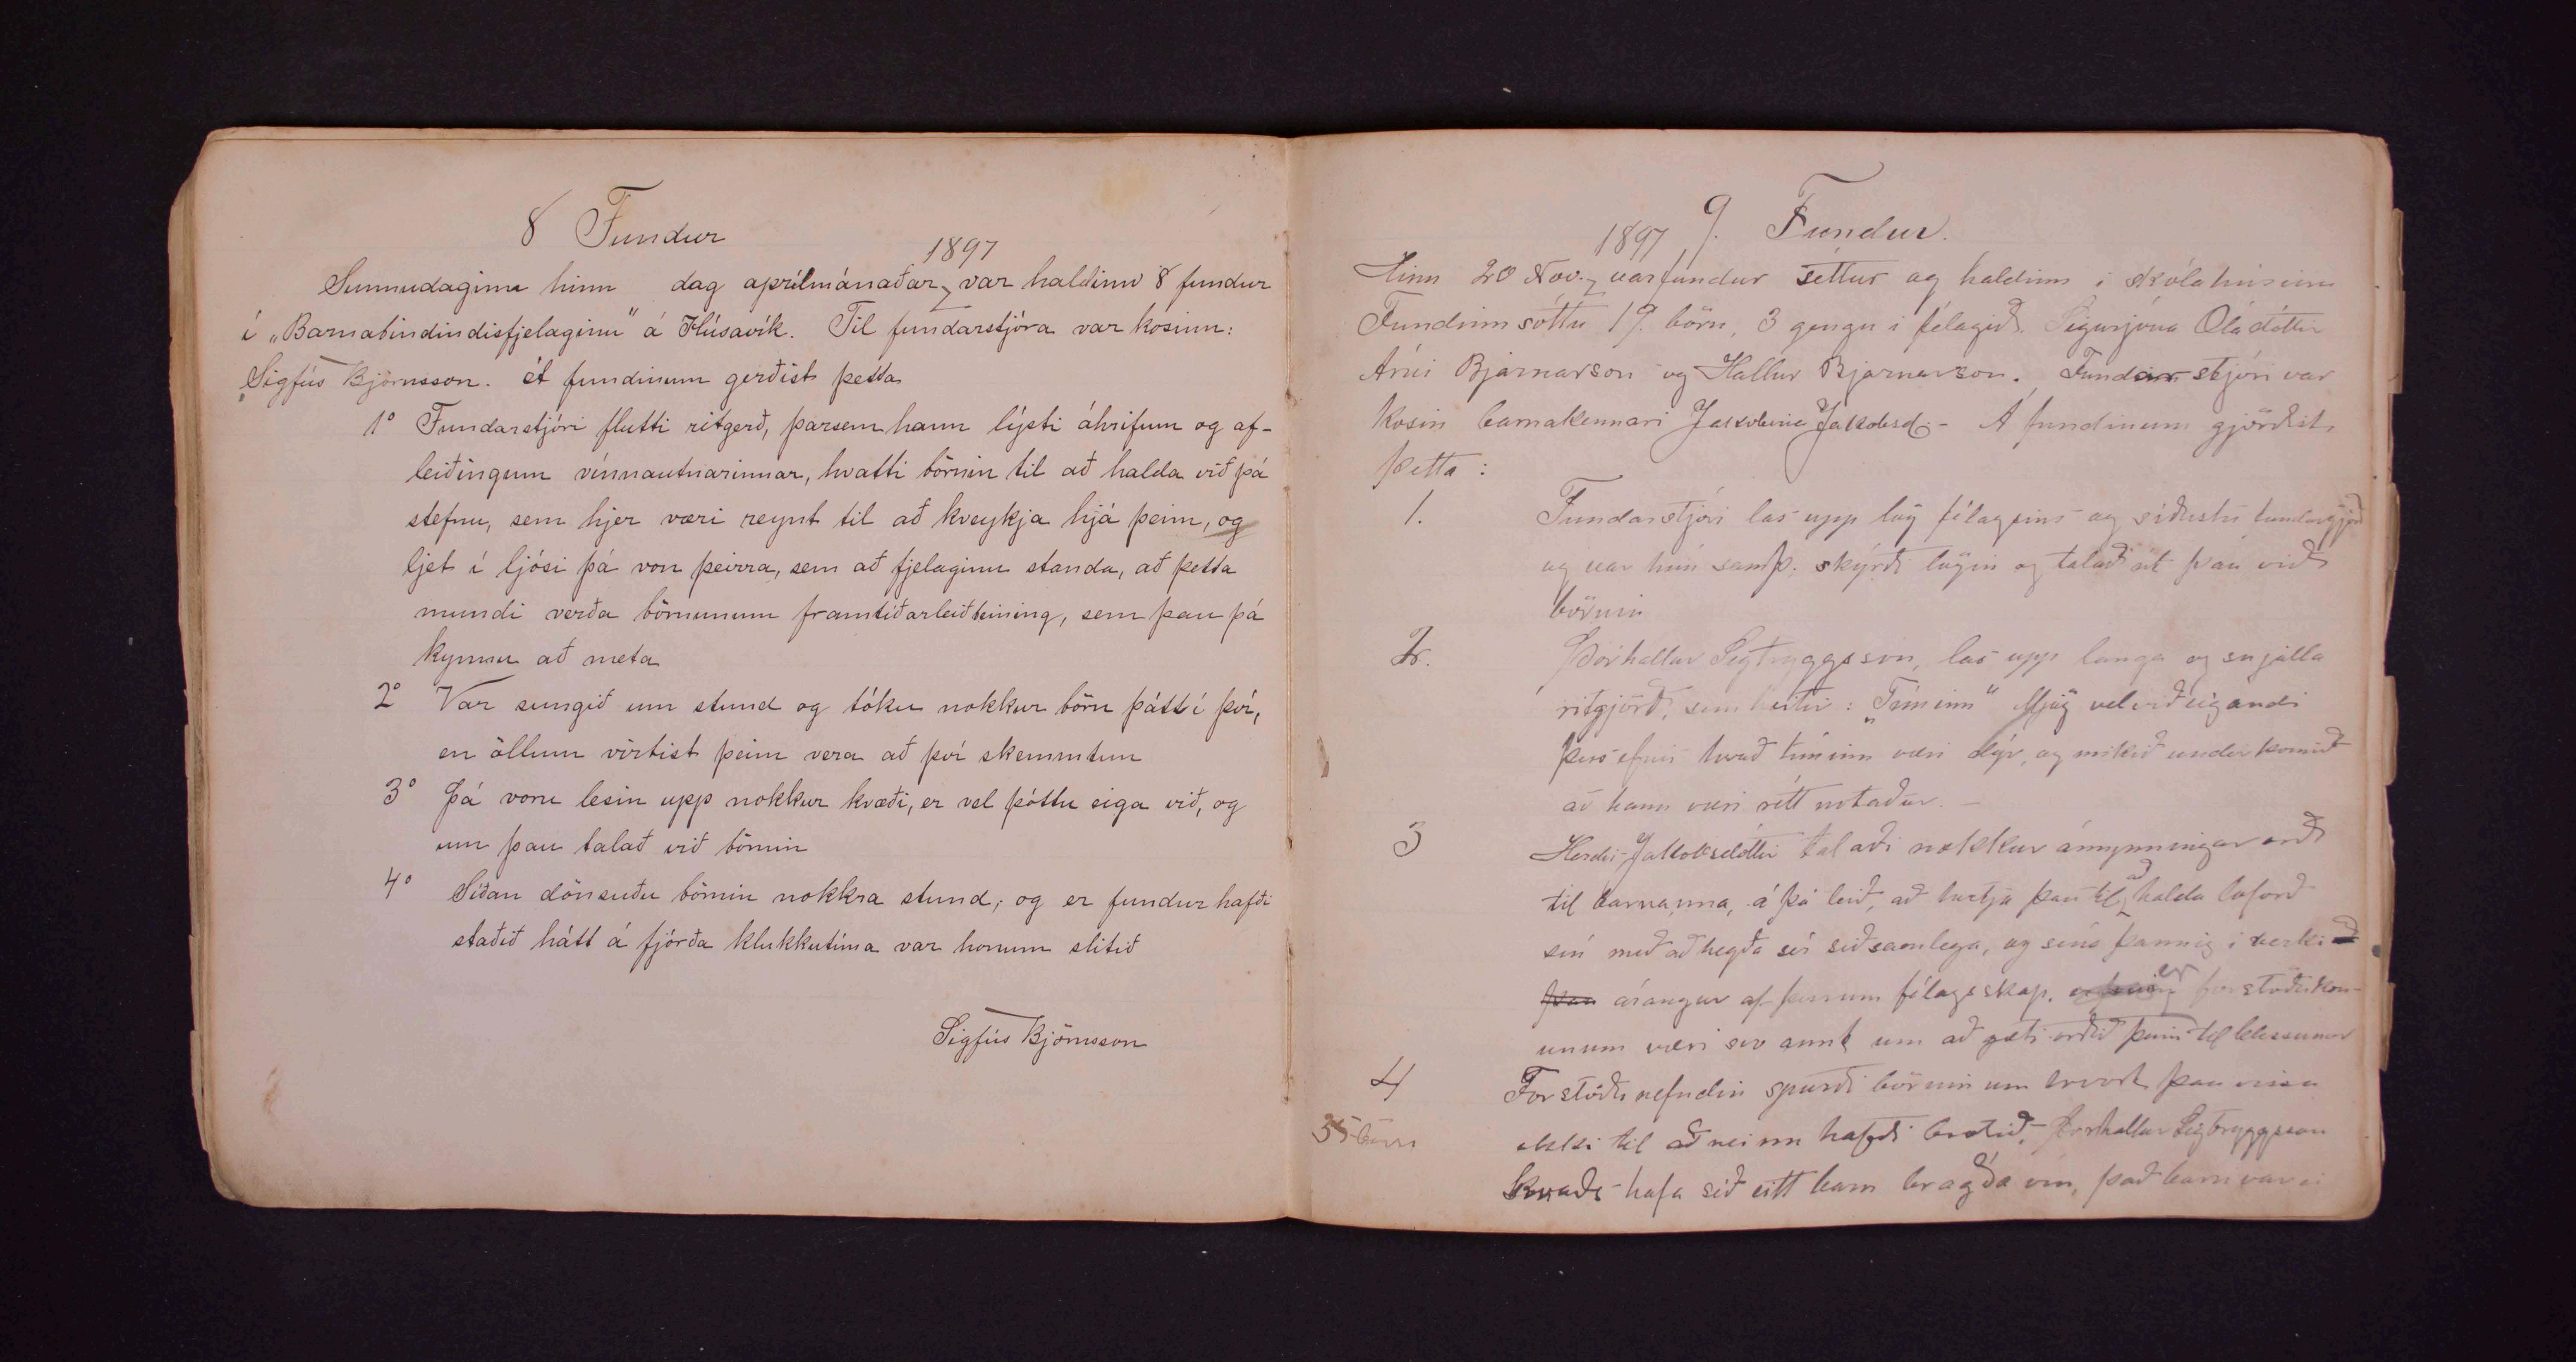 8 Fundur
1897
Sunnudaginn hinn dag aprílmánaðar, var haldinn 8 fundur
í „Barnabindindisfjelaginu" á Húsavík. Til fundarstjóra var kosinn:
Sigfús Björnsson. Á fundinum gerðist þetta
1° Fundarstjóri flutti ritgerð, þarsem hann lýsti áhrifum og af-
leiðingum vínnautnarinnar, hvatti börnin til að halda við þá
stefnu, sem hjer væri reynt til að kveykja hjá þeim, og
ljet í ljósi þá von þeirra, sem að fjelaginu standa, að þetta
mundi verða börnunum framtíðarleiðbeining, sem þau þá
kynnu að meta
2° Var sungið um stund og tóku nokkur börn þátt í því,
en öllum virtist þeim vera að því skemmtun
3° Þá voru lesin upp nokkur kvæði, er vel þóttu eiga við, og
um þau talað við börnin
4° Síðan dönsuðu börnin nokkra stund; og er fundur hafði
staðið hátt á fjórða klukkutíma var honum slitið
Sigfús Björnsson
9. Fundur.
1897
Hinn 20 Nov. var fundur settur og haldinn í skólahúsinu
Fundinn sóttu 19. börn, 3 gengu í félagið. Sigurjóna Óladóttir
Árni Bjarnarson og Hallur Bjarnarson. Fundarstjóri var
kosin barnakennari Jakobína Jakobsd. - Á fundinum gjörðist
þetta:
1. Fundarstjóri las upp lög félagsins og síðustu fundargjörð
og var hún samþ. skýrði lögin og talaði út þau við
börnin
2. Þórhallur Sigtryggsson, las upp langa og snjalla
ritgjörð, sem heitir: „Tíminn" Mjög vel viðeigandi
þess efnis hvað tíminn væri dýr, og mikið undir komið
að hann væri rétt notaður. -
3 Herdís Jakobsdóttir talaði nokkur áminningar orð
til barnanna, á þá leið, að hvetja þau til að halda loforð
sín með að hegða sér siðsamlega, og sína þannig í verki
þau árangur af þessum félagsskap, er forstöðukon-
unum væri svo annt um að gæti orðið þeim til blessunar
4 Forstöðunefndin spurði börnin um hvort þau vissu
35 börn
ekki til að neinn hafði brotið, Þórhallur Sigtryggsson
kvaðs hafa séð eitt barn bragða vín, það barn var ei